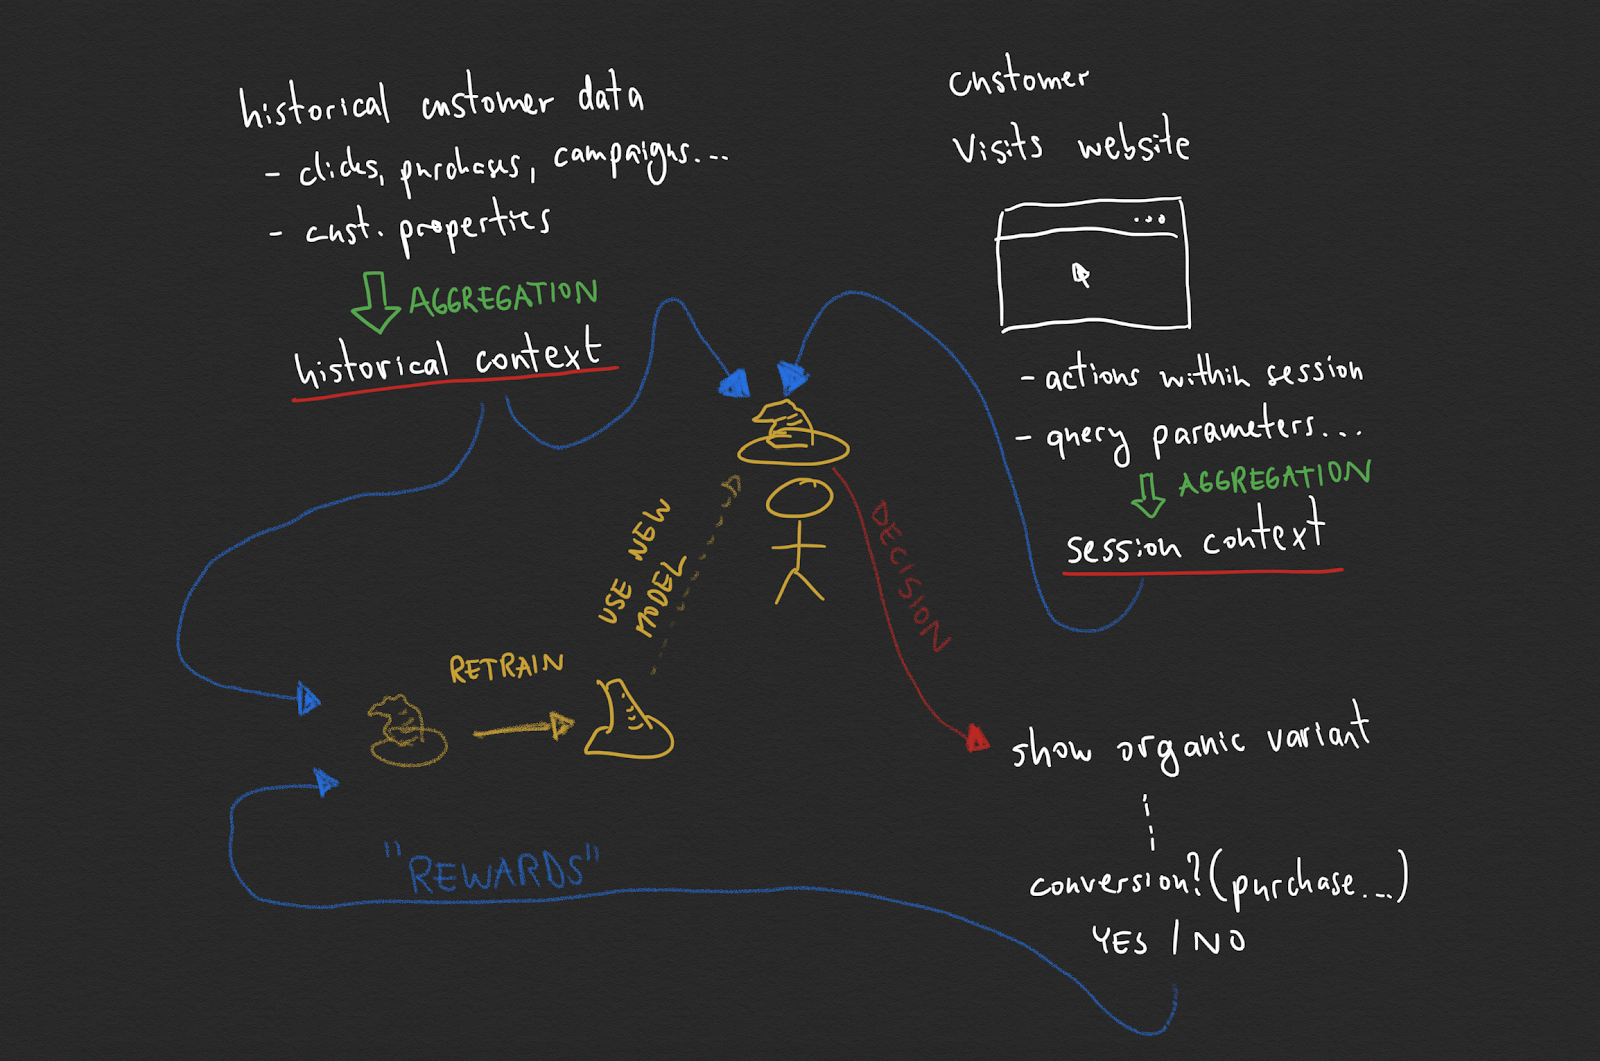 historical customer data
- clicks, purchases, campaigns...
- cust. properties
AGGREGATION
historical context
customer
visits website
...
- actions within session
- query parameters...
AGGREGATION
session context
USE NEW
MODEL
DECISION
RETRAIN
show organic variant
"REWARDS"
conversion? (purchase...)
YES / NO